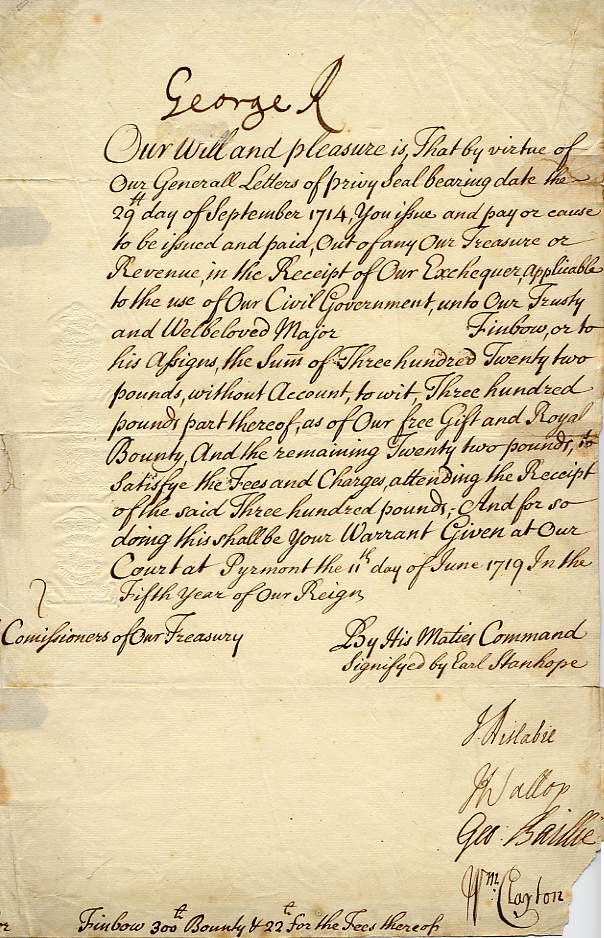 George R
Our Will and pleasure is, That by virtue of
Our Generall Letters of privy Seal bearing date the
29th day of September 1714, You issue and pay or cause
to be issued and paid, Out of any Our Treasure or
Revenue, in the Receipt of Our Exchequer applicable
to the use of Our Civil Government, unto Our Trusty
and Welbeloved Major Finbow, or to
his Assigns, the Sum̄ of Three hundred Twenty two
pounds, without Account, to wit, Three hundred
pounds part thereof, as of Our free Gift and Royal
Bounty, And the remaining Twenty two pounds, to
Satisfye the Fees and Charges, attending the Receipt
of the said Three hundred pounds; And for so
doing this shall be Your Warrant Given at Our
Court at Pyrmont the 11th day of June 1719 In the
Fifth Year of Our Reign
Com̄issioners of Our Treasury
By His Maties Command
Signifyed by Earl Stanhope
J Aislabie
J Wallop
Geo: Baillie
Wm: Clayton
Finbow 300 Bounty & 22 for the Fees thereof